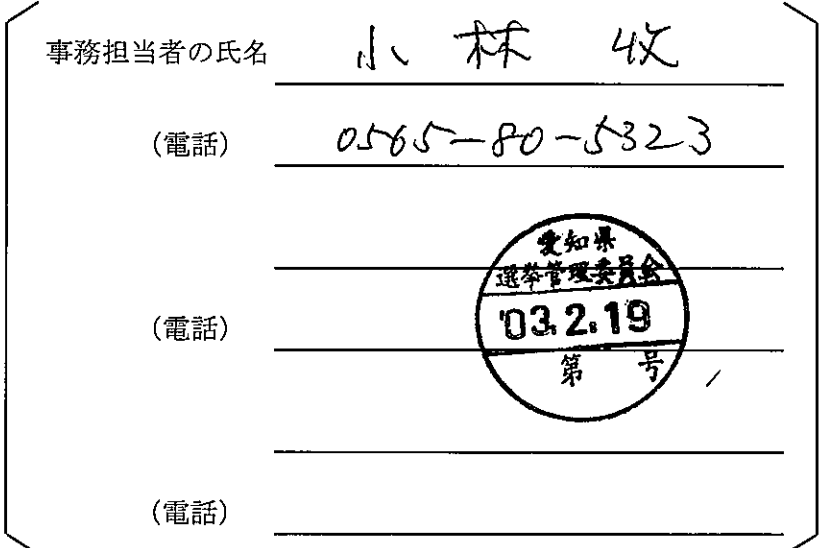 事務担当者の氏名 小林 收
(電話) 0565-80-5323
愛知県
選挙管理委員会
'03.2.19
第 号
(電話)
(電話)